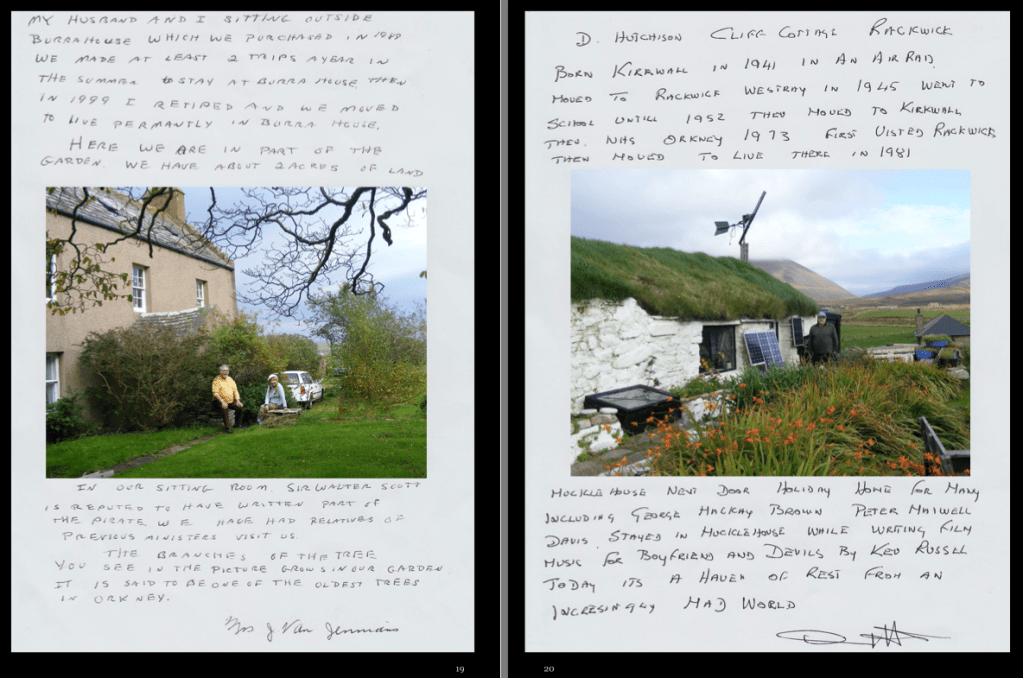 MY HUSBAND AND I SITTING OUTSIDE
BURRAHOUSE WHICH WE PURCHASED IN 1989
WE MADE AT LEAST 2 TRIPS A YEAR IN
THE SUMMER TO STAY AT BURRA HOUSE THEN
IN 1999 I RETIRED AND WE MOVED
TO LIVE PERMANTLY IN BURRA HOUSE.
HERE WE ARE IN PART OF THE
GARDEN. WE HAVE ABOUT 2 ACRES OF LAND
IN OUR SITTING ROOM. SIR WALTER SCOTT
IS REPUTED TO HAVE WRITTEN PART OF
THE PIRATE. WE HAVE HAD RELATIVES OF
PREVIOUS MINISTERS VISIT US.
THE BRANCHES OF THE TREE
YOU SEE IN THE PICTURE GROWS IN OUR GARDEN
IT IS SAID TO BE ONE OF THE OLDEST TREES
IN ORKNEY.
Mrs J Van
19
D. HUTCHISON CLIFF COTTAGE RACKWICK
BORN KIRKWALL IN 1941 IN AN AIR RAID.
MOVED TO RACKWICK WESTRAY IN 1945 WENT TO
SCHOOL UNTILL 1952 THEN MOVED TO KIRKWALL
THEN. NHS ORKNEY 1973 FIRST VISTED RACKWICK
THEN MOVED TO LIVE THERE IN 1981
MUCKLEHOUSE NEXT DOOR HOLIDAY HOME FOR MANY
INCLUDING GEORGE MACKAY BROWN PETER MAXWELL
DAVIS. STAYED IN MUCKLEHOUSE WHILE WRITING FILM
MUSIC FOR BOYFRIEND AND DEVILS BY KEN RUSSELL
TODAY ITS A HAVEN OF REST FROM AN
INCRESINGLY MAD WORLD
20